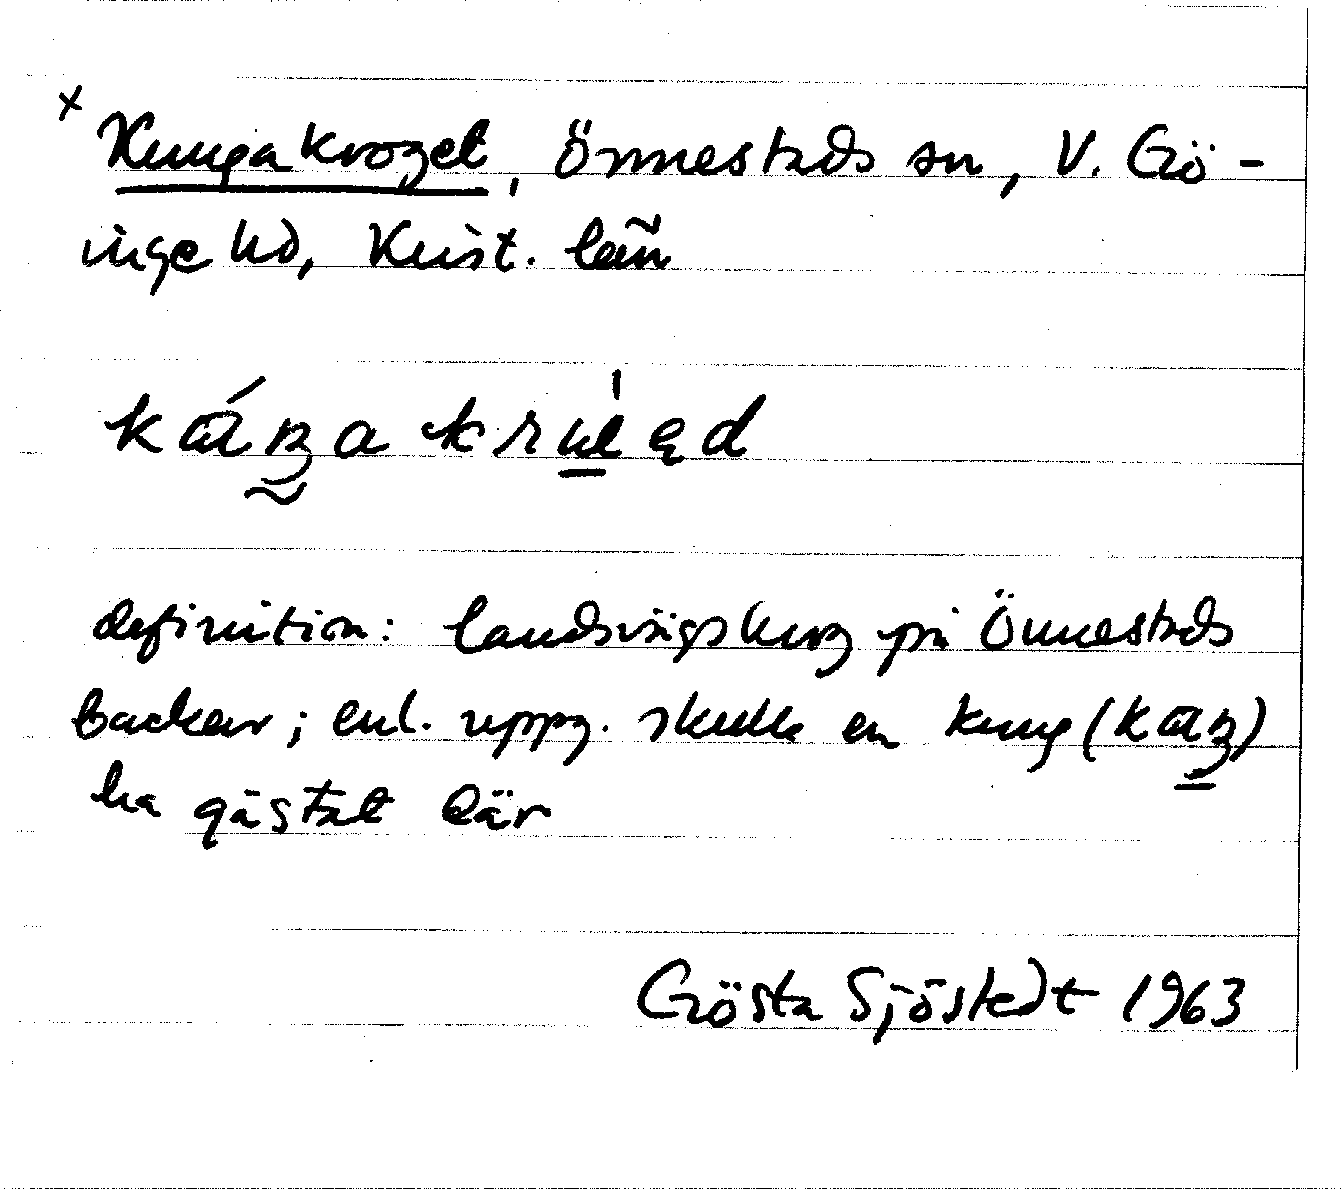 x Kungakroget, Önnestads sn, V. Gö-
inge hd, Krist. län
definition: landsvägskrog på Önnestads
backar; enl. uppg. skulle en kung (
ha gästat där
Gösta Sjöstedt 1963